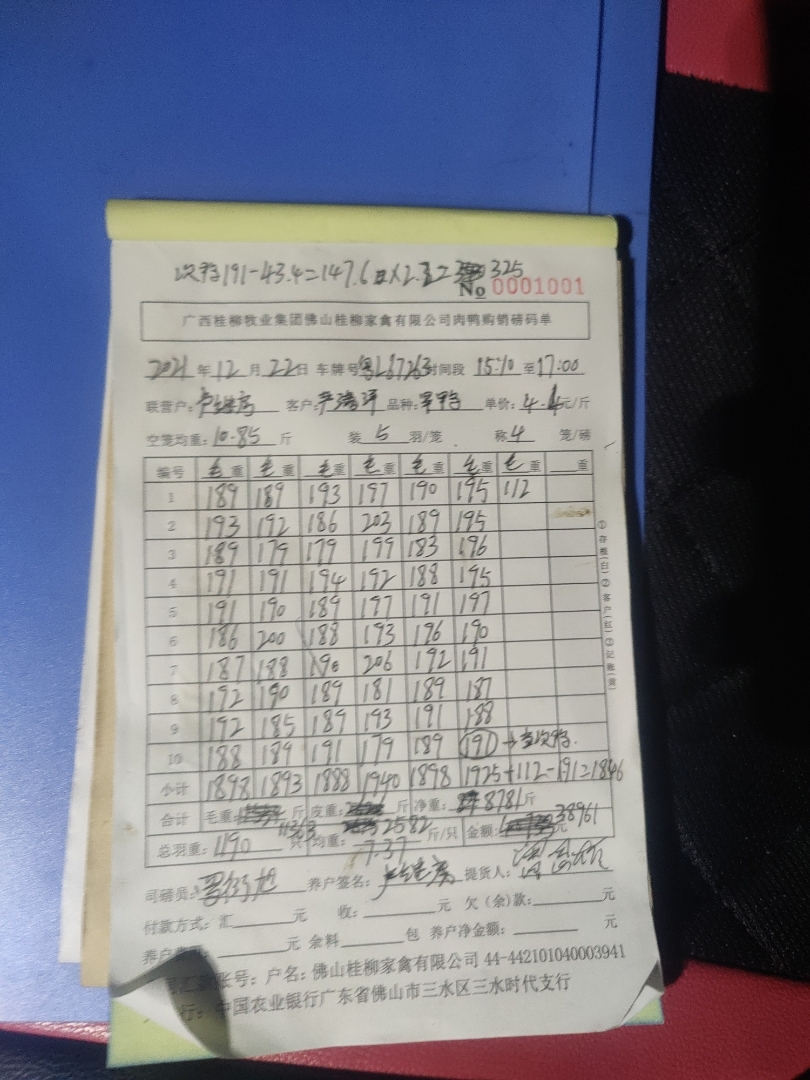 次特191-43.4=147.6 X2.2= 325
No 0001001
广西桂柳牧业集团佛山桂柳家禽有限公司肉鸭购销磅码单
2021年12月22日 车牌号粤L87263时间段 15:10至17:00
联营户: 客户: 品种: 单价:4.4元/斤
空笼均重:10.85斤 装5羽/笼 称4笼/磅
编号 毛重 毛重 毛重 毛重 毛重 毛重 毛重 重
1 189 189 193 197 190 195 112
2 193 192 186 203 189 195
3 189 179 179 199 183 196
4 191 191 194 192 188 195
5 191 190 189 197 191 197
6 186 200 188 193 196 190
7 187 188 190 206 192 191
8 192 190 189 181 189 187
9 192 185 189 193 191 188
10 188 189 191 179 189 191 → 次特.
小计 1898 1893 1888 1940 1898 1925+112-191=1846
合计 毛重: 11363 斤 皮重: 2582 斤 净重: 8781斤
总羽重:1190只 均重:7.37斤/只 金额: 38961元
司磅员: 养户签名: 提货人:
付款方式:汇 元 收: 元 欠(余)款: 元
养户 元 余料 包 养户净金额: 元
汇款账号:户名:佛山桂柳家禽有限公司 44-442101040003941
行:中国农业银行广东省佛山市三水区三水时代支行
①存根(白)②客户(红)③记账(黄)